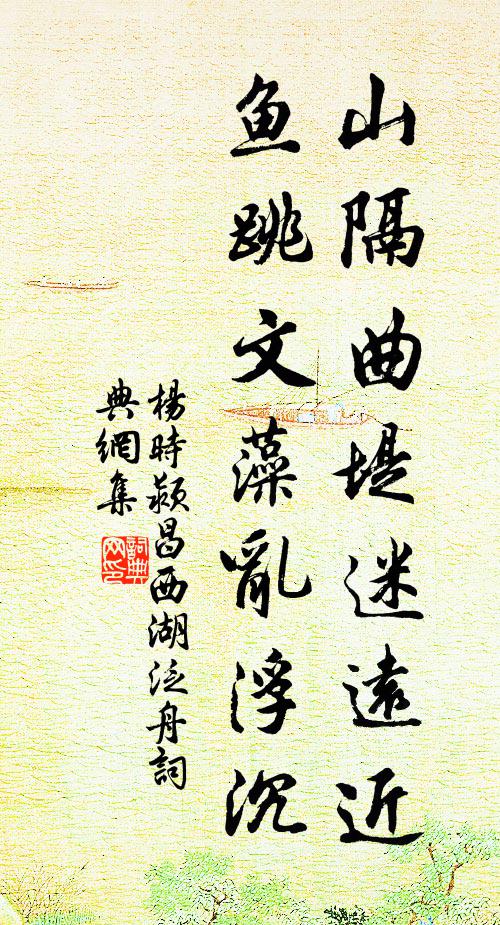 山隔曲堤迷遠近
鱼跳文藻亂浮沉
楊時颍昌西湖泛舟詞
典網集
詞典
网印